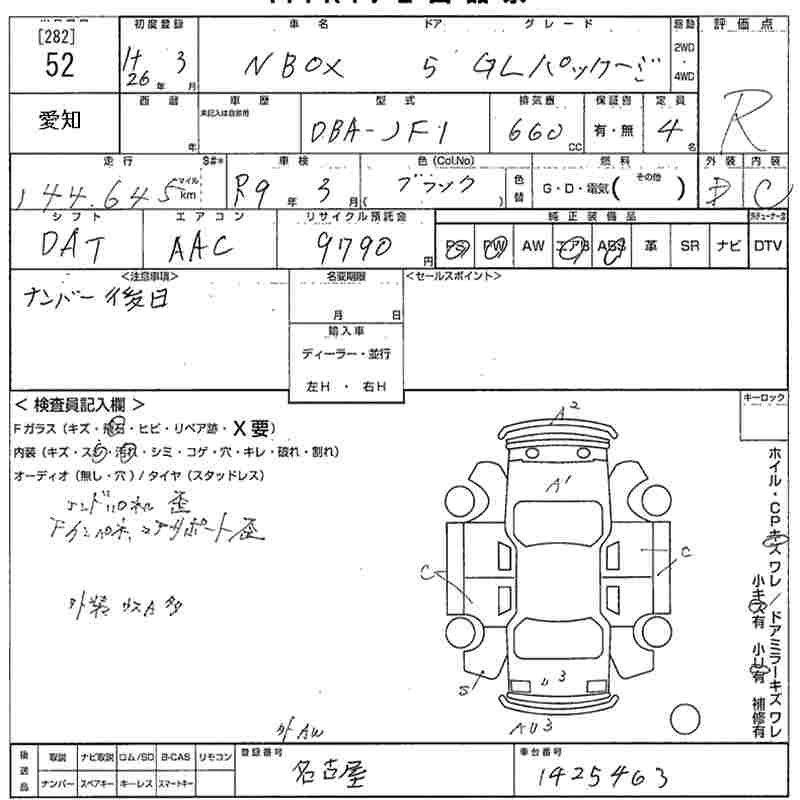 [282]
52
初度登録
H 26年 3月
車名 ドア グレード
N BOX 5 GLパッケージ
駆動
2WD
・
4WD
評価点
R
愛知
西暦
年
車歴
未記入は自家用
型式
DBA-JF1
排気量
660 CC
保証書
有・無
定員
4名
走行 S#*
144.645 マイル km
車検
R9年 3月
色(Col.No)
(ブラック)
色替
燃料
G・D・電気(その他)
外装
D
内装
C
シフト
DAT
エアコン
AAC
リサイクル預託金
9790円
純正装備品
PS PW AW エアB ABS 革 SR ナビ
DTV
<注意事項>
ナンバー後日
名変期限
月 日
輸入車
ディーラー・並行
左H ・ 右H
<セールスポイント>
<検査員記入欄>
Fガラス(キズ・飛石・ヒビ・リペア跡・X要)
内装(キズ・スレ・汚れ・シミ・コゲ・穴・キレ・破れ・割れ)
オーディオ(無し・穴)/タイヤ(スタッドレス)
エンドパネル 歪
Fインパネ、コアサポート歪
外装 キズA多
外AW
キーロック
A2
A1
C
C
S
U3
AU3
ホイル・CPキズ ワレ/ドアミラーキズ ワレ
小キズ有 小U有 補修有
後送品
取説 ナビ取説 ロム/SD B-CAS リモコン
ナンバー スペアキー キーレス スマートキー
登録番号
名古屋
車台番号
1425463